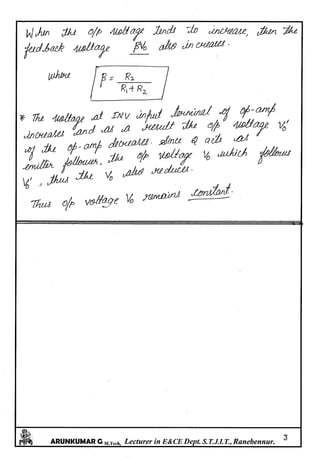 When the o/p voltage tends to increase, then the
feedback voltage βV₀ also increases.
where β = R₂ / R₁ + R₂
* The voltage at INV input terminal of op-amp
increases and as a result the o/p voltage V₀'
of the op-amp decreases. Since Q acts as
emitter follower, the o/p voltage V₀ which follows
V₀', thus the V₀ also reduces.
Thus o/p voltage V₀ remains constant.
ARUNKUMAR G M.Tech, Lecturer in E&CE Dept. S.T.J.I.T., Ranebennur. 3